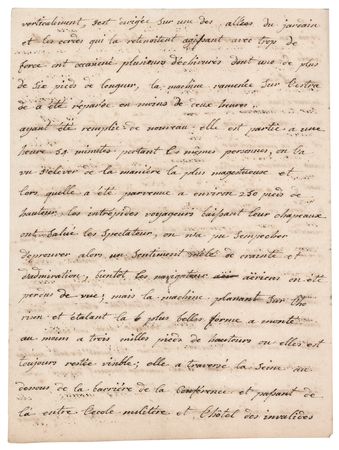 verticalement, s'est dirigée sur une des allées du jardain
et les cordes qui la retenoitent agissant avec trop de
force ont occasioné plusieurs déchirures dont une de plus
de six pieds de longeur, la machine ramenée sur l'estra
de a été réparée en moins de deux heures.
ayant été remplie de nouveau elle est partie a une
heure 54 minutes portant les mêmes personnes, on l'a
vu s'élever de la manière la plus magestueuse et
lors quelle a été parvenue a environ 250 pieds de
hauteur, les intrépides voyageurs baissant leur chapeaux
ont salué les spectateur, on n'a pu s'empecher
d'eprouver alors un sentiment mêlé de crainte et
d'admiration, bientôt les navigateur aériens on été
perdus de vue; mais la machine planant sur l'ho
rison et étalant la plus belles forme a monté
au moins a trois milles pieds de hauteurs ou elles est
toujours restée visible; elle a traversé la Seine au
dessous de la barrière de la Conférence et passant de
là entre l'école militère et l'hôtel des invalides